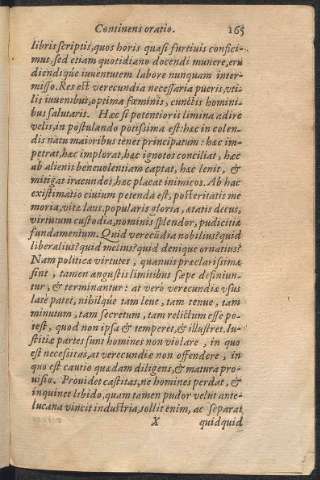 Continens oratio. 165
libris scriptis, quos horis quasi furtiuis confici-
mus. sed etiam quotidiano docendi munere, eru
diendiq́ue iuuentuem labore nunquam inter-
misso. Res est verecundia necessaria pueris, vti-
lis iuuenibus, optima fœminis, cunctis homini-
bus salutaris. Hæc si petentioris limina adire
velis, in postulando potissima est: hæc in colen-
dis natu maioribus tenet principatum: hæc im-
petrat, hæc implorat, hæc ignotos conciliat, hæc
ab alienis beneuolentiam captat, hæc lenit, &
mitigat iracundos, hæc placat inimicos. Ab hac
existimatio ciuium petenda est, posteritatis me
moria, vitæ laus, popularis gloria, ætatis decus,
virtutum custodia, nominis splendor, pudicitiæ
fundamentum. Quid verecūdia nobilius? quid
liberalius? quid melius? quid denique ornatius?
Nam politicæ virtutes, quanuis præclarissimæ
sint, tamen angustis limitibus sæpe definiun-
tur, & terminantur: at verò verecundiæ vsus
latè patet, nihilque tam leue, tam tenue, tam
minutum, tam secretum, tam relictum esse po-
test, quod non ipsa & temperet, & illustret. Iu-
stitiæ partes sunt homines non violare, in quo
est necessitas, at verecundiæ non offendere, in
quo est cautio quædam diligens, & matura pro-
uisio. Prouidet castitas, ne homines perdat, &
inquinet libido, quam tamen pudor velut ante-
lucana vincit industria, tollit enim, ac separat
X quidquid